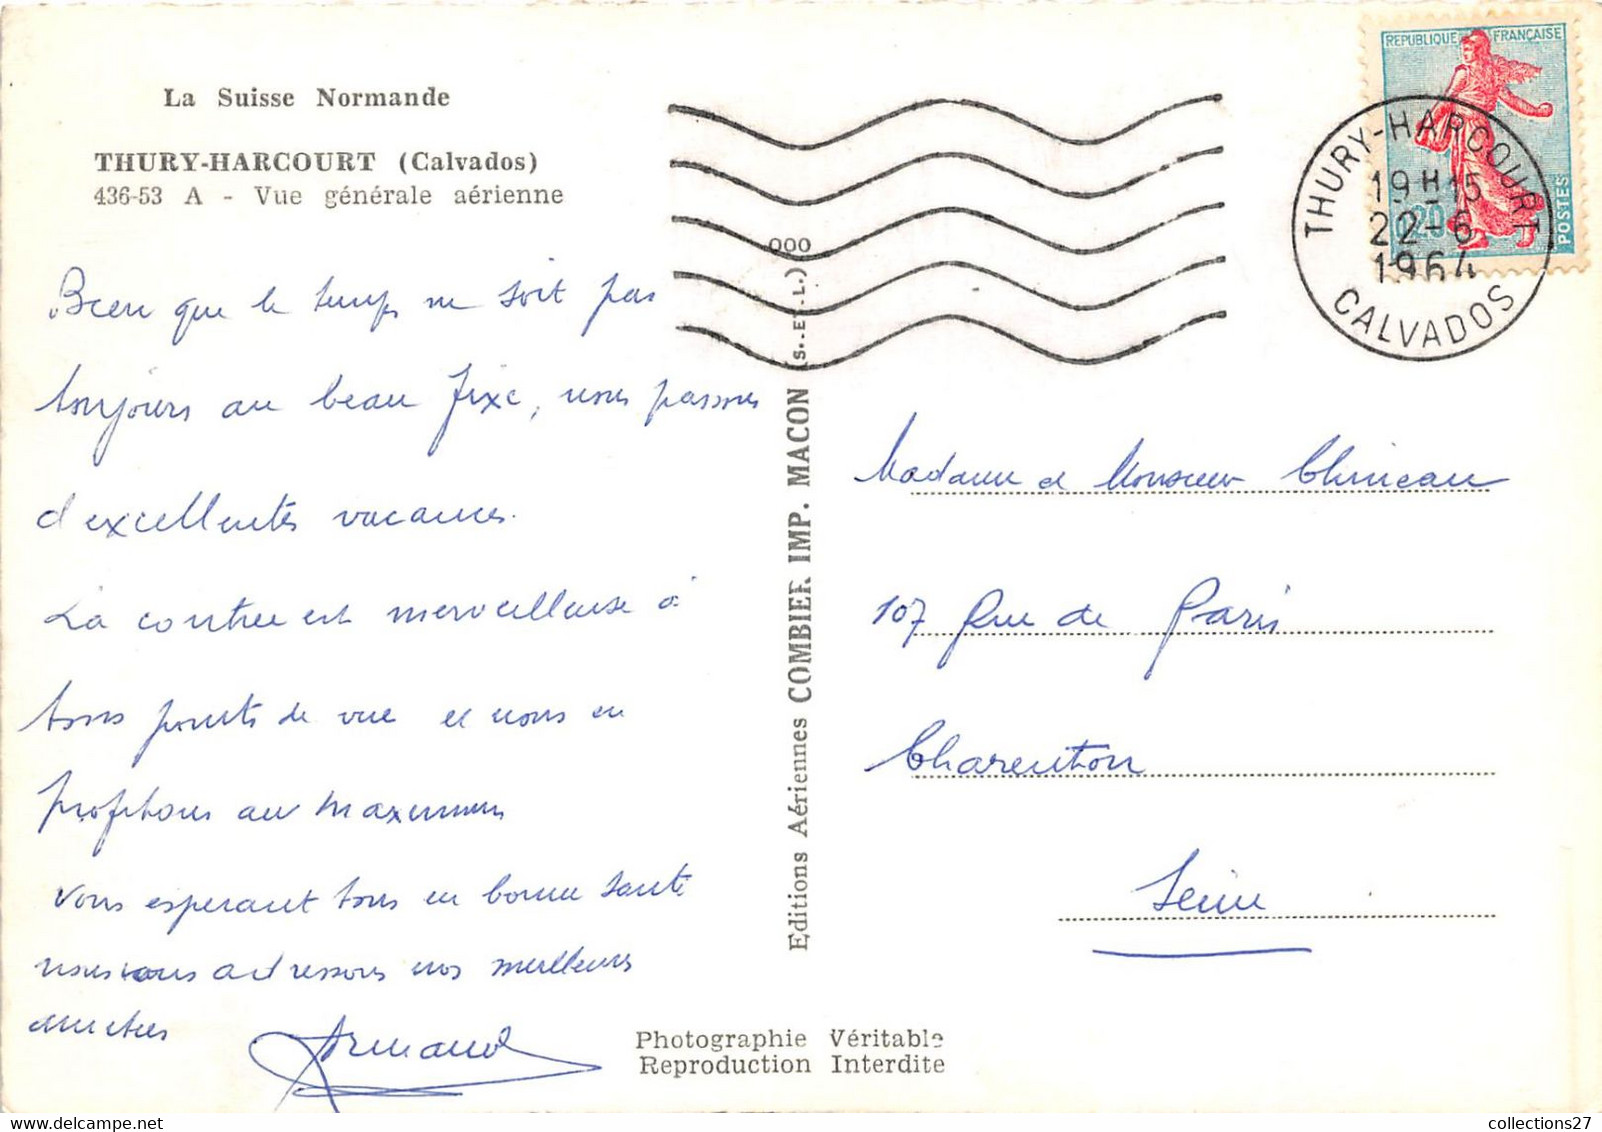 La Suisse Normande
THURY-HARCOURT (Calvados)
436-53 A - Vue générale aérienne
Bien que le temps ne soit pas
toujours au beau fixe, nous passons
d'excellentes vacances.
La contrée est merveilleuse à
tous points de vue et nous en
profitons au maximum
Vous espérant tous en bonne santé
nous vous adressons nos meilleures
amitiés
Armand
REPUBLIQUE FRANÇAISE
0,20
POSTES
THURY-HARCOURT
19H15
22-6
1964
CALVADOS
Madame et Monsieur Chineau
107 Rue de Paris
Charenton
Seine
Editions Aériennes COMBIER IMP. MACON (S.E.L.) 000
Photographie Véritable
Reproduction Interdite
collections27